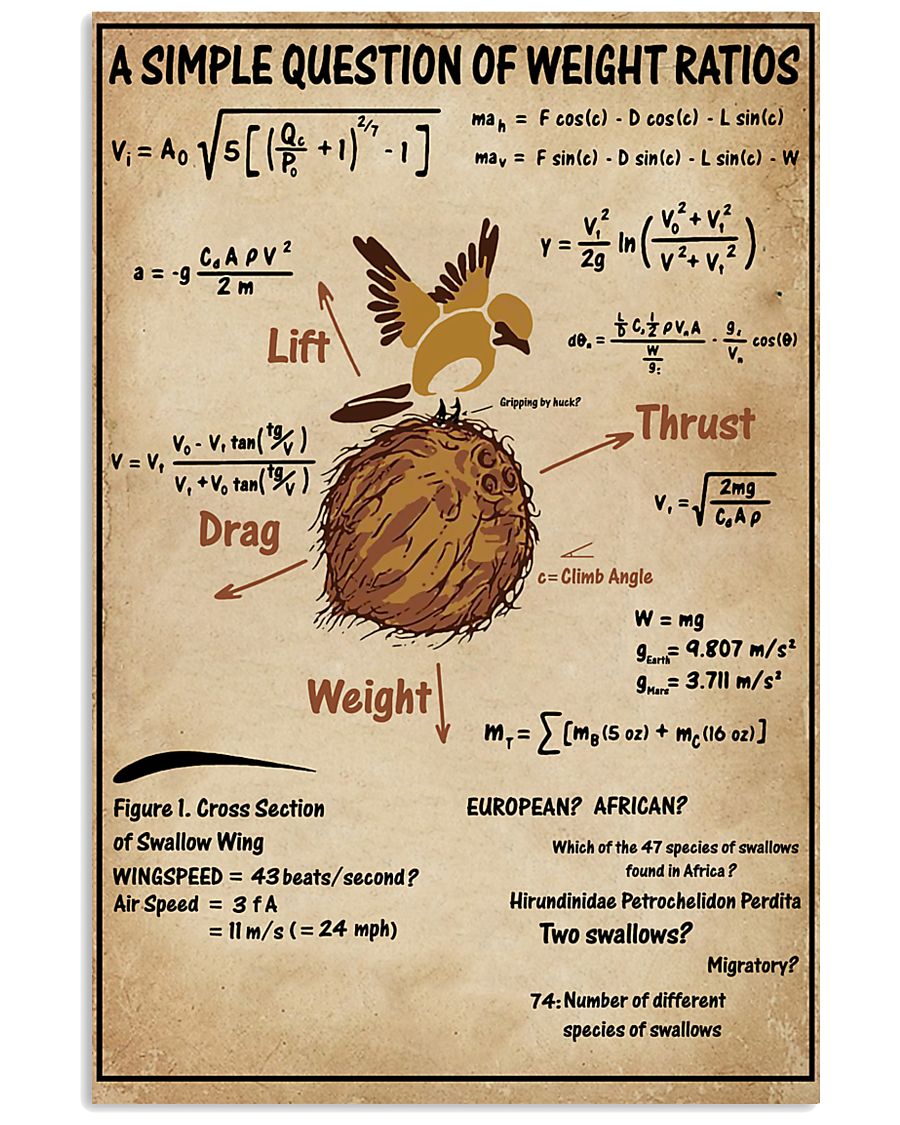 A SIMPLE QUESTION OF WEIGHT RATIOS
Vᵢ = A₀ √5[(Q꜀/P₀ + 1)^2/7 - 1]
maₕ = F cos(c) - D cos(c) - L sin(c)
maᵥ = F sin(c) - D sin(c) - L sin(c) - W
y = Vₜ²/2g ln(V₀² + Vₜ²/V² + Vₜ²)
a = -g C_d A ρ V²/2 m
Lift
dθₙ = L/D C, 1/2 ρ Vₙ A/W/g: · g,/Vₙ cos(θ)
Gripping by huck?
Thrust
V = Vₜ V₀ - Vₜ tan(tg/V)/Vₜ + V₀ tan(tg/V)
Vₜ = √2mg/C_d A ρ
Drag
c= Climb Angle
W = mg
g_Earth = 9.807 m/s²
g_Mars = 3.711 m/s²
Weight
m_T = ∑[m_B (5 oz) + m_C (16 oz)]
Figure 1. Cross Section
of Swallow Wing
WINGSPEED = 43 beats/second?
Air Speed = 3 f A
= 11 m/s (= 24 mph)
EUROPEAN? AFRICAN?
Which of the 47 species of swallows
found in Africa?
Hirundinidae Petrochelidon Perdita
Two swallows?
Migratory?
74: Number of different
species of swallows